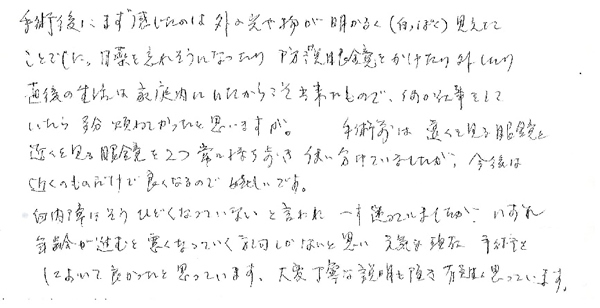 手術後にまず感じたのは外の光や物が明かるく(白っぽく)見えて
ことでした。目薬を忘れそうになったり 防護眼鏡をかけたり外したり
直後の生活は家庭内にいたからこそ出来たもので、何か仕事をして
いたら多分煩わしかったと思いますが。 手術前は遠くを見る眼鏡と
近くを見る眼鏡を2つ常に持ち歩き使い分けていましたが、今後は
近くのものだけで良くなるので嬉しいです。
白内障はそうひどくなっていないと言われ 一寸迷っていましたが いずれ
年齢が進むと悪くなっていく しかないと思い 元気な現在 手術を
しておいて良かったと思っています、大変丁寧な説明も頂き有難く思っています。